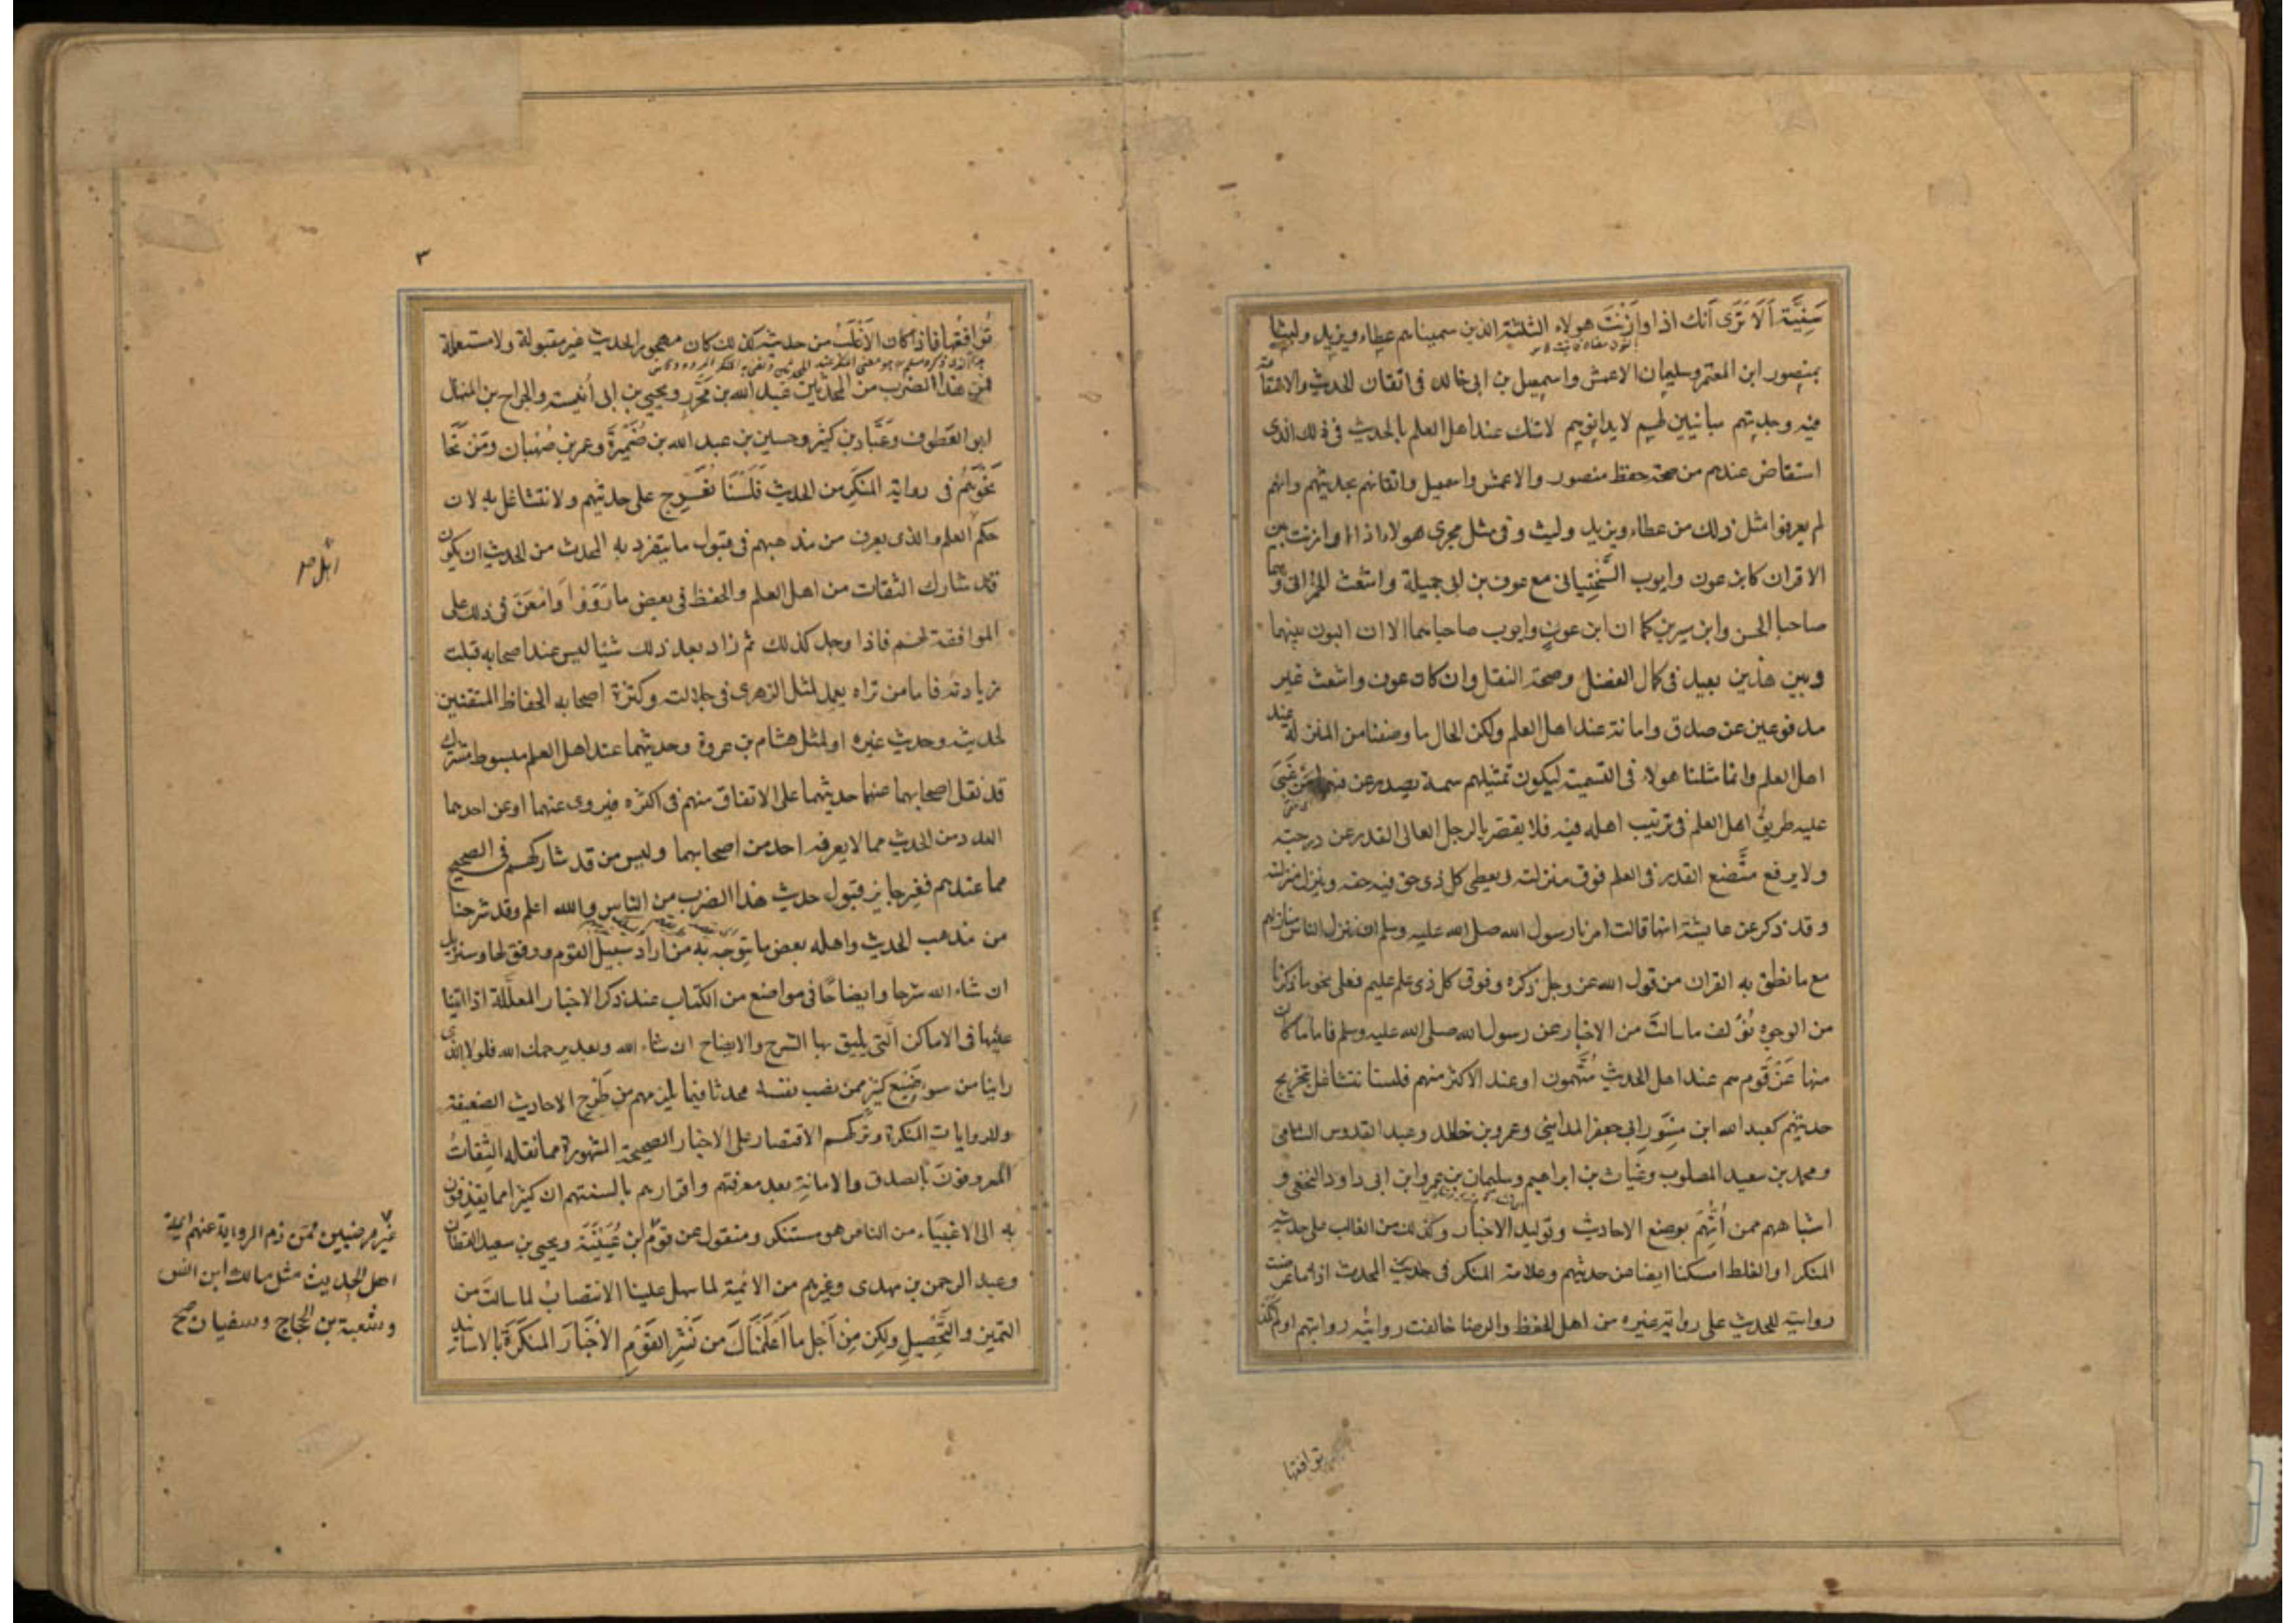 سَنِيَّة اَلَا تَرَى اَنك اذا وازَنْتَ هولاء الثلثة الذين سميناهم عطاء ويزيد وليثا
بمنصور ابن المعتمر وسليمان الاعمش واسمعيل بن ابى خالد فى اتقان الحديث والاستقامة
فيه وجدتهم مباينين لهم لا يدانونهم لا شك عند اهل العلم بالحديث فى ذلك الذى
استفاض عندهم من صحة حفظ منصور والاعمش واسمعيل واتقانهم بحديثهم وانهم
لم يعرفوا مثل ذلك من عطاء ويزيد وليث وفى مثل مجرى هولاء اذا وازنت بين
الاقران كابن عون وايوب السَّخْتِيانى مع عوف بن ابى جميلة واشعث الحمرانى وهما
صاحبا الحسن وابن سيرين كما ان ابن عون وايوب صاحباهما الا ان البون بينهما
وبين هذين بعيد فى كمال الفضل وصحة النقل وان كان عوف واشعث غير
مدفوعين عن صدق وامانة عند اهل العلم ولكن الحال ما وصفنا من المنزلة عند
اهل العلم وانما مثلنا هولاء فى التسمية ليكون تمثيلهم سمة يصدر عن فهمها من غَبِىَ
عليه طريق اهل العلم فى ترتيب اهله فيه فلا يقصر بالرجل العالى القدر عن درجته
ولا يرفع متَّضع القدر فى العلم فوق منزلته ويعطى كل ذى حق فيه حقه وينزل منزلته
وقد ذكر عن عايشة انها قالت امرنا رسول الله صلى الله عليه وسلم ان ننزل الناس منازلهم
مع ما نطق به القران من قول الله عز وجل ذكره وفوق كل ذى علم عليم فعلى نحو ما ذكرنا
من الوجوه نُؤَلف ما سالتَ من الاخبار عن رسول الله صلى الله عليه وسلم فاما ما كان
منها عَنْ قَوم هم عند اهل الحديث مُتَّهمون او عند الاكثر منهم فلسنا نتشاغل بتخريج
حديثهم كعبد الله ابن مِسْوَر ابى جعفر المدائنى وعمرو بن خالد وعبد القدوس الشامى
ومحمد بن سعيد المصلوب وغياث بن ابراهيم وسليمان بن عمرو ابن ابى داود النخعى و
اشباههم ممن اُتُّهِمَ بوضع الاحاديث وتوليد الاخبار وكذلك من الغالب على حديثه
المنكر او الغلط امسكنا ايضا عن حديثهم وعلامة المنكر فى حديث المحدث اذا ما عرضت
روايته للحديث على رواية غيره من اهل الحفظ والرضا خالفت روايته روايتهم اولم تكد
توافقها
٣
تُوَافِقُها فاذا كان الاَغْلَبُ من حديثه كذلك كان مهجور الحديث غير مقبولة ولا مستعملة
فمن هذا الضرب من المحدثين عبد الله بن مُحَرَّر ويحيى بن ابى اُنَيسة والجراح بن المنهال
ابو العَطوف وعَبَّاد بن كثير وحسين بن عبد الله بن ضُمَيْرَةَ وعمر بن صُهْبان ومَن نَحَا
نَحْوَهُمْ فى رواية المنكَر من الحديث فَلَسْنَا نُعَرِّج على حديثهم ولا نتشاغل به لان
حكم العلم والذى يعرف من مذهبهم فى قبول ما يتفرد به المحدث من الحديث ان يكون
قد شارك الثقات من اهل العلم والحفظ فى بعض ما رَوَوْا وَامْعَنَ فى ذلك على
الموافقة لهم فاذا وجد كذلك ثم زاد بعد ذلك شيئا ليس عند اصحابه قبلت
زيادته فاما من تراه يعمد لمثل الزهرى فى جلالته وكثرة اصحابه الحفاظ المتقنين
لحديثه وحديث غيره او لمثل هشام بن عروة وحديثهما عند اهل العلم مبسوط مشترك
قد نقل اصحابهما عنهما حديثهما على الاتفاق منهم فى اكثره فيروى عنهما او عن احدهما
العدد من الحديث مما لا يعرفه احد من اصحابهما وليس من قد شاركهم فى الصحيح
مما عندهم فغير جايز قبول حديث هذا الضرب من الناس والله اعلم وقد شرحنا
من مذهب الحديث واهله بعض ما يتوجه به من اراد سبيل القوم ووفق لها وسنزيد
ان شاء الله شرحا وايضاحًا فى مواضع من الكتاب عند ذكر الاخبار المعلَّلة اذا اتينا
عليها فى الاماكن التى يليق بها الشرح والايضاح ان شاء الله وبعد يرحمك الله فلولا الذى
راينا من سوء صَنِيع كثير ممن نصب نفسه محدثا فيما يلزمهم من طَرْح الاحاديث الضعيفة
والروايات المنكرة وتركهم الاقتصار على الاخبار الصحيحة المشهورة مما نقله الثِقاتُ
المعروفونَ بالصدق والامانة بعد معرفتهم واقرارهم بالسنتهم ان كثيرا مما يقذفون
به الى الاغبيَاء من الناس هو مستنكر ومنقول عن قوم ابن عُيَيْنَة ويحيى بن سعيد القطان
وعبد الرحمن بن مهدى وغيرهم من الائمة لما سهل علينا الانتصابُ لما سالتَ من
التميز والتَّحْصِيل ولكن مِن اَجل ما اَعْلَمْنَاكَ من نَشْرِ القَوْمِ الاَخْبَارَ المنكَرَة بالاسانيد
غير مرضيين ممن ذم الرواية عنهم ايمة
اهل الحديث مثل مالك ابن انس
وشعبة بن الحجاج وسفيان صح